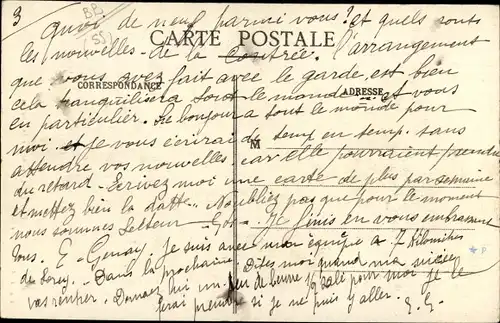 3
Quoi de neuf parmi vous? et quels sont
les nouvelles de la contrée. l'arrangement
CARTE POSTALE
que vous avez fait avec le garde est bien
CORRESPONDANCE
ADRESSE
cela tranquilisera tout le monde et vous
en particulier. Le bonjour a tout le monde pour
moi. et je vous écrirai de temp en temp. sans
M
attendre vos nouvelles car elle pourraient prendre
du retard. Ecrivez moi une carte de plus par semaine
et mettez bien la datte. N'oubliez pas que pour le moment
nous sommes Secteur Je finis en vous embrassant
Tous. E. je suis avec mon équipe a 7 kilomètres
de Dans la prochaine Dites moi quand ma nièce
vas Donnez lui un peu de pour moi je le
ferai prendre si je ne puis y aller. E. G.